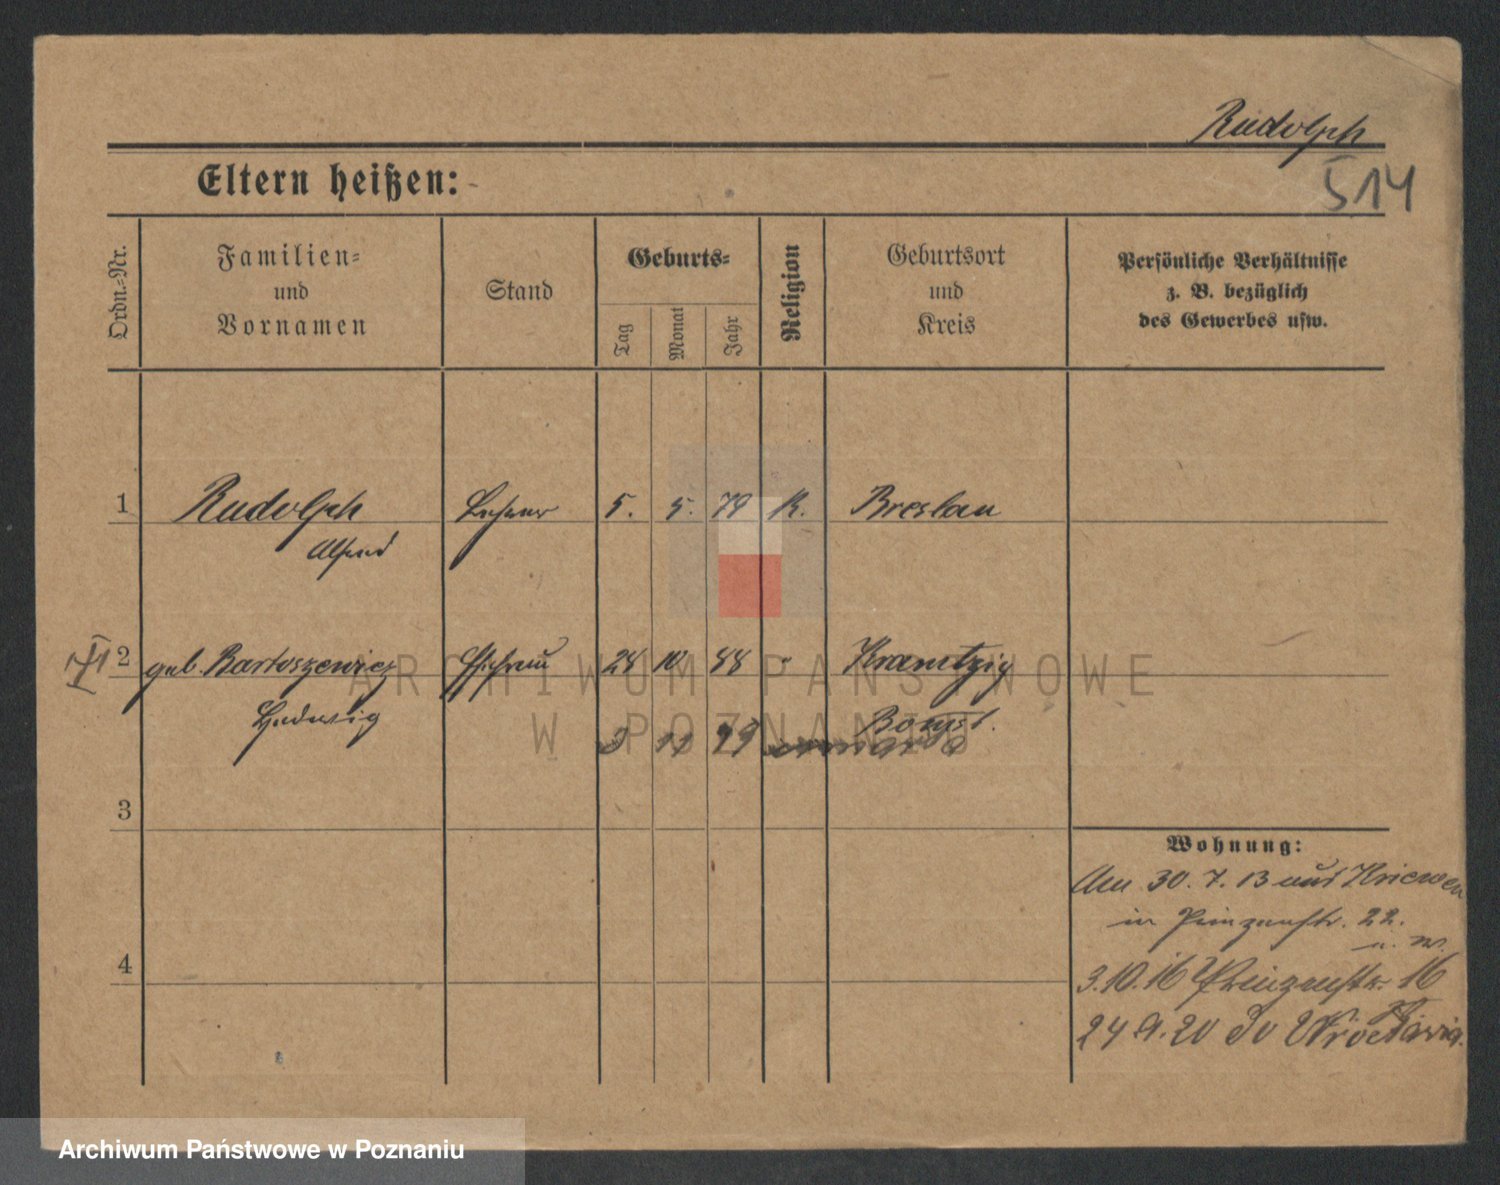 Rudolph
514
Eltern heißen:
Ordn.-Nr.
Familien-
und
Vornamen
Stand
Geburts-
Tag
Monat
Jahr
Religion
Geburtsort
und
Kreis
Persönliche Verhältnisse
z. B. bezüglich
des Gewerbes usw.
1 Rudolph Lehrer 5. 5. 79 K. Breslau
Alfred
2 geb. Bartoszewicz Ehefrau 10 88 " Kramtzig
Hedwig Bomst.
11
3
Wohnung:
Am 30. 7. 13 aus Kriewen
in Prinzenstr. 22.
3.10.16 Prinzenstr. 16
4
24 9. 20 Do Wrocławia.
ARCHIWUM PAŃSTWOWE
W POZNANIU
Archiwum Państwowe w Poznaniu